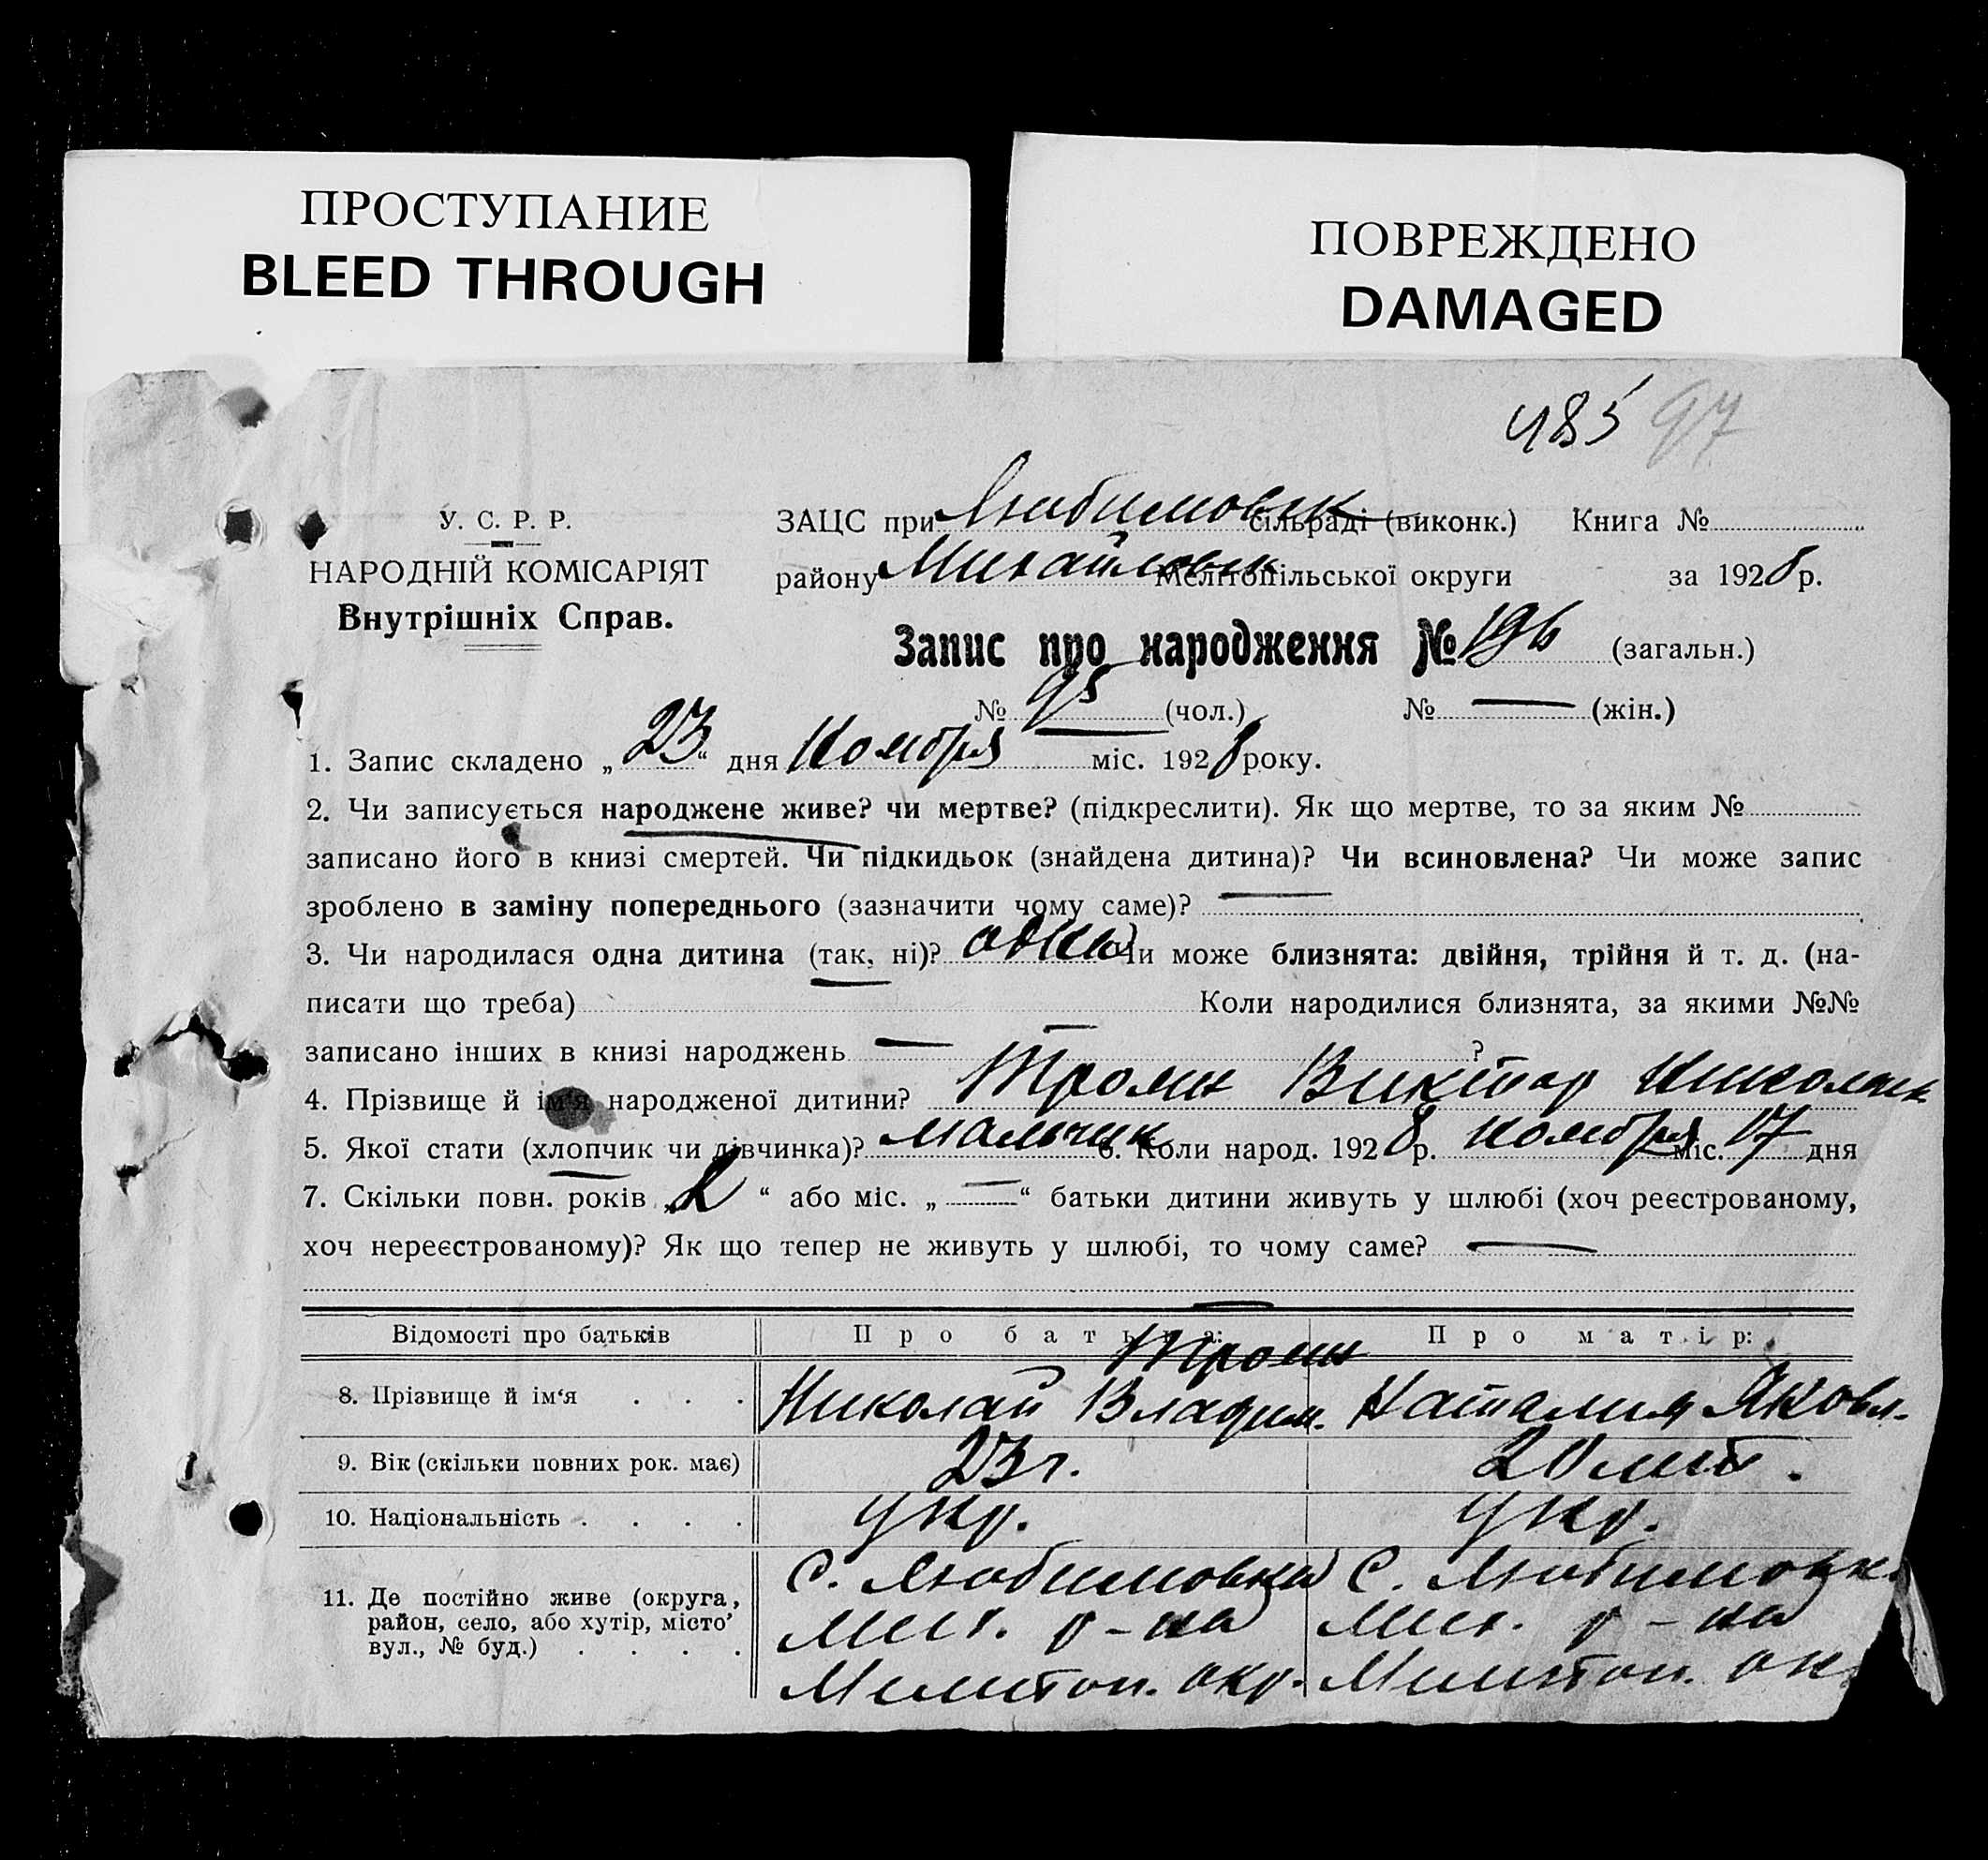 ПРОСТУПАНИЕ
BLEED THROUGH
ПОВРЕЖДЕНО
DAMAGED
485 97
У. С. Р. Р.
НАРОДНІЙ КОМІСАРІЯТ
Внутрішніх Справ.
ЗАЦС при Любимовск сільраді (виконк.) Книга №
району Михайловск Мелітопільської округи за 1928 р.
Запис про народження № 196 (загальн.)
№ 95 (чол.) № — (жін.)
1. Запис складено „ 23 “ дня Ноября міс. 1928 року.
2. Чи записується народжене живе? чи мертве? (підкреслити). Як що мертве, то за яким №
записано його в книзі смертей. Чи підкидьок (знайдена дитина)? Чи всиновлена? Чи може запис
зроблено в заміну попереднього (зазначити чому саме)? —
3. Чи народилася одна дитина (так, ні)? одна Чи може близнята: двійня, трійня й т. д. (на-
писати що треба) Коли народилися близнята, за якими №№
записано інших в книзі народжень — ?
4. Прізвище й ім'я народженої дитини? Троян Виктор Николаев
5. Якої стати (хлопчик чи дівчинка)? мальчик 6. Коли народ. 1928 р. Ноября міс. 17 дня
7. Скільки повн. років „ 2 “ або міс. „ — “ батьки дитини живуть у шлюбі (хоч реєстрованому,
хоч нереєстрованому)? Як що тепер не живуть у шлюбі, то чому саме? —
Відомості про батьків Про батька: Про матір:
Троян
8. Прізвище й ім‘я . . . Николай Владим. Наталия Яковл.
9. Вік (скільки повних рок. має) 23 г. 20 лет.
10. Національність . . . . укр. укр.
11. Де постійно живе (округа,
район, село, або хутір, місто’
вул., № буд.) . . . .
С. Любимовка
Мих. р-на
Мелитоп. окр.
С. Любимовк
Мих. р-на
Мелитоп. ок